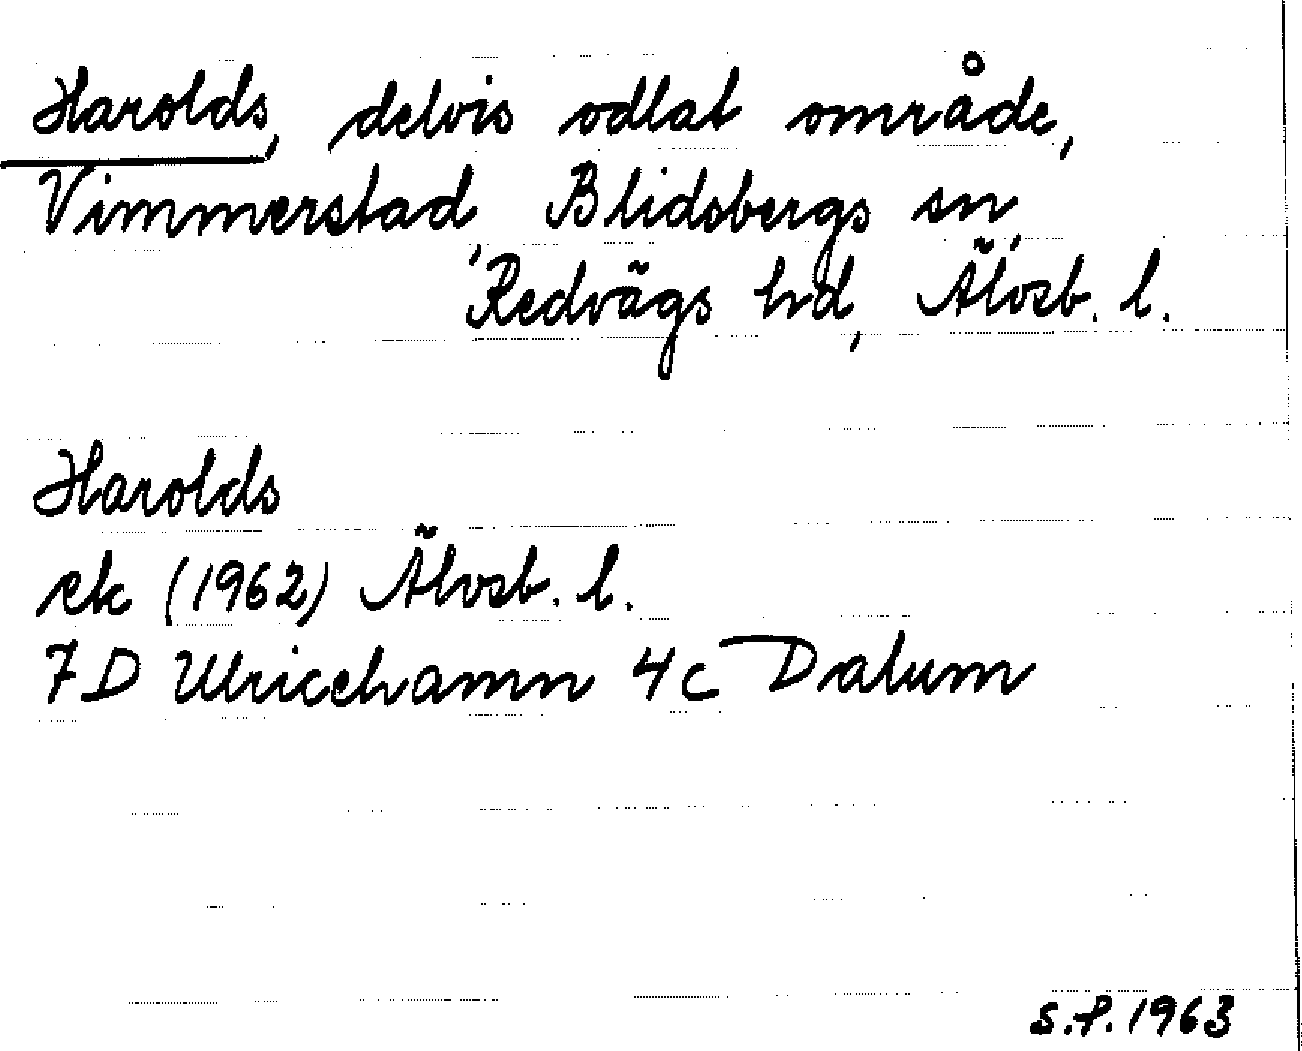 Harolds, delvis odlat område,
Vimmerstad, Blidsbergs sn,
Redvägs hd, Älvsb. l.
Harolds
ek (1962) Älvsb. l.
7D Ulricehamn 4c Dalum
S.P. 1963